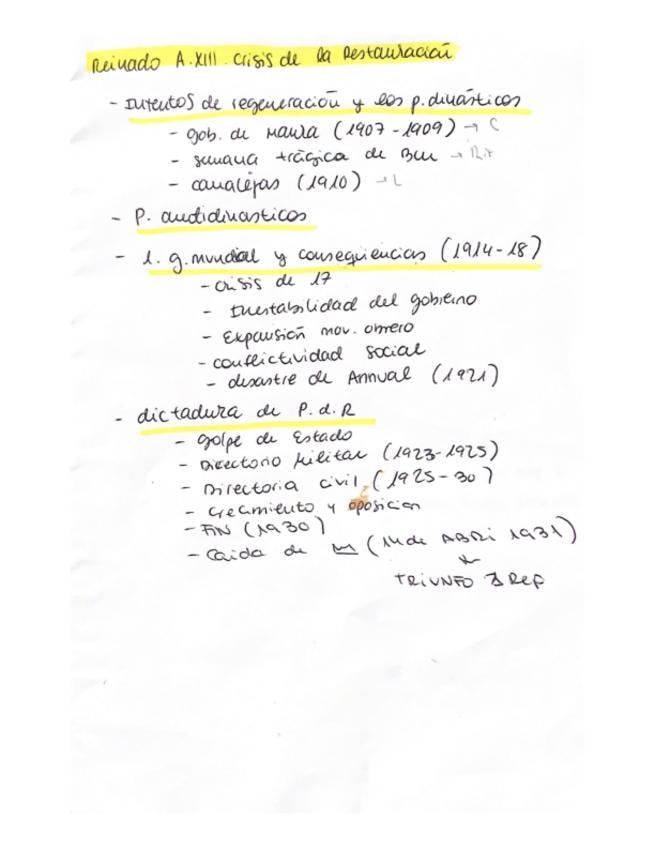 Reinado A.XIII. Crisis de la Restauración
- Intentos de regeneración y los p. dinásticos
- gob. de Maura (1907-1909) → C
- semana trágica de Bcn →
- canalejas (1910) → L
- P. antidinasticos
- 1. g. mundial y consequencias (1914-18)
- crisis de 17
- Inestabilidad del gobierno
- Expansión mov. obrero
- conflictividad social
- desastre de Annual (1921)
- dictadura de P.d.R
- golpe de Estado
- Directorio Militar (1923-1925)
- Directoria civil (1925-30)
- crecimiento y oposicion
- FIN (1930)
- Caida de M (14 de ABRi 1931)
TRiUNFO Rep